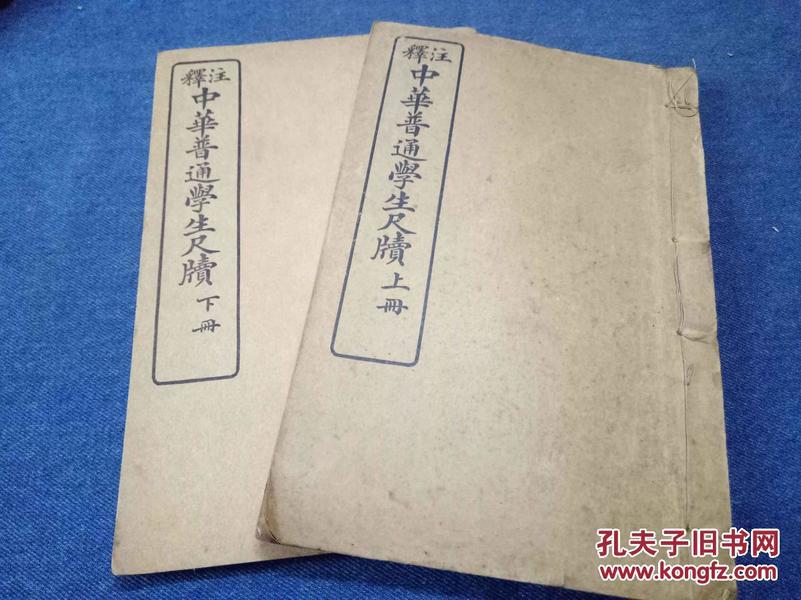 注釋
中華普通學生尺牘 下冊
注釋
中華普通學生尺牘 上冊
孔夫子旧书网
www.kongfz.com